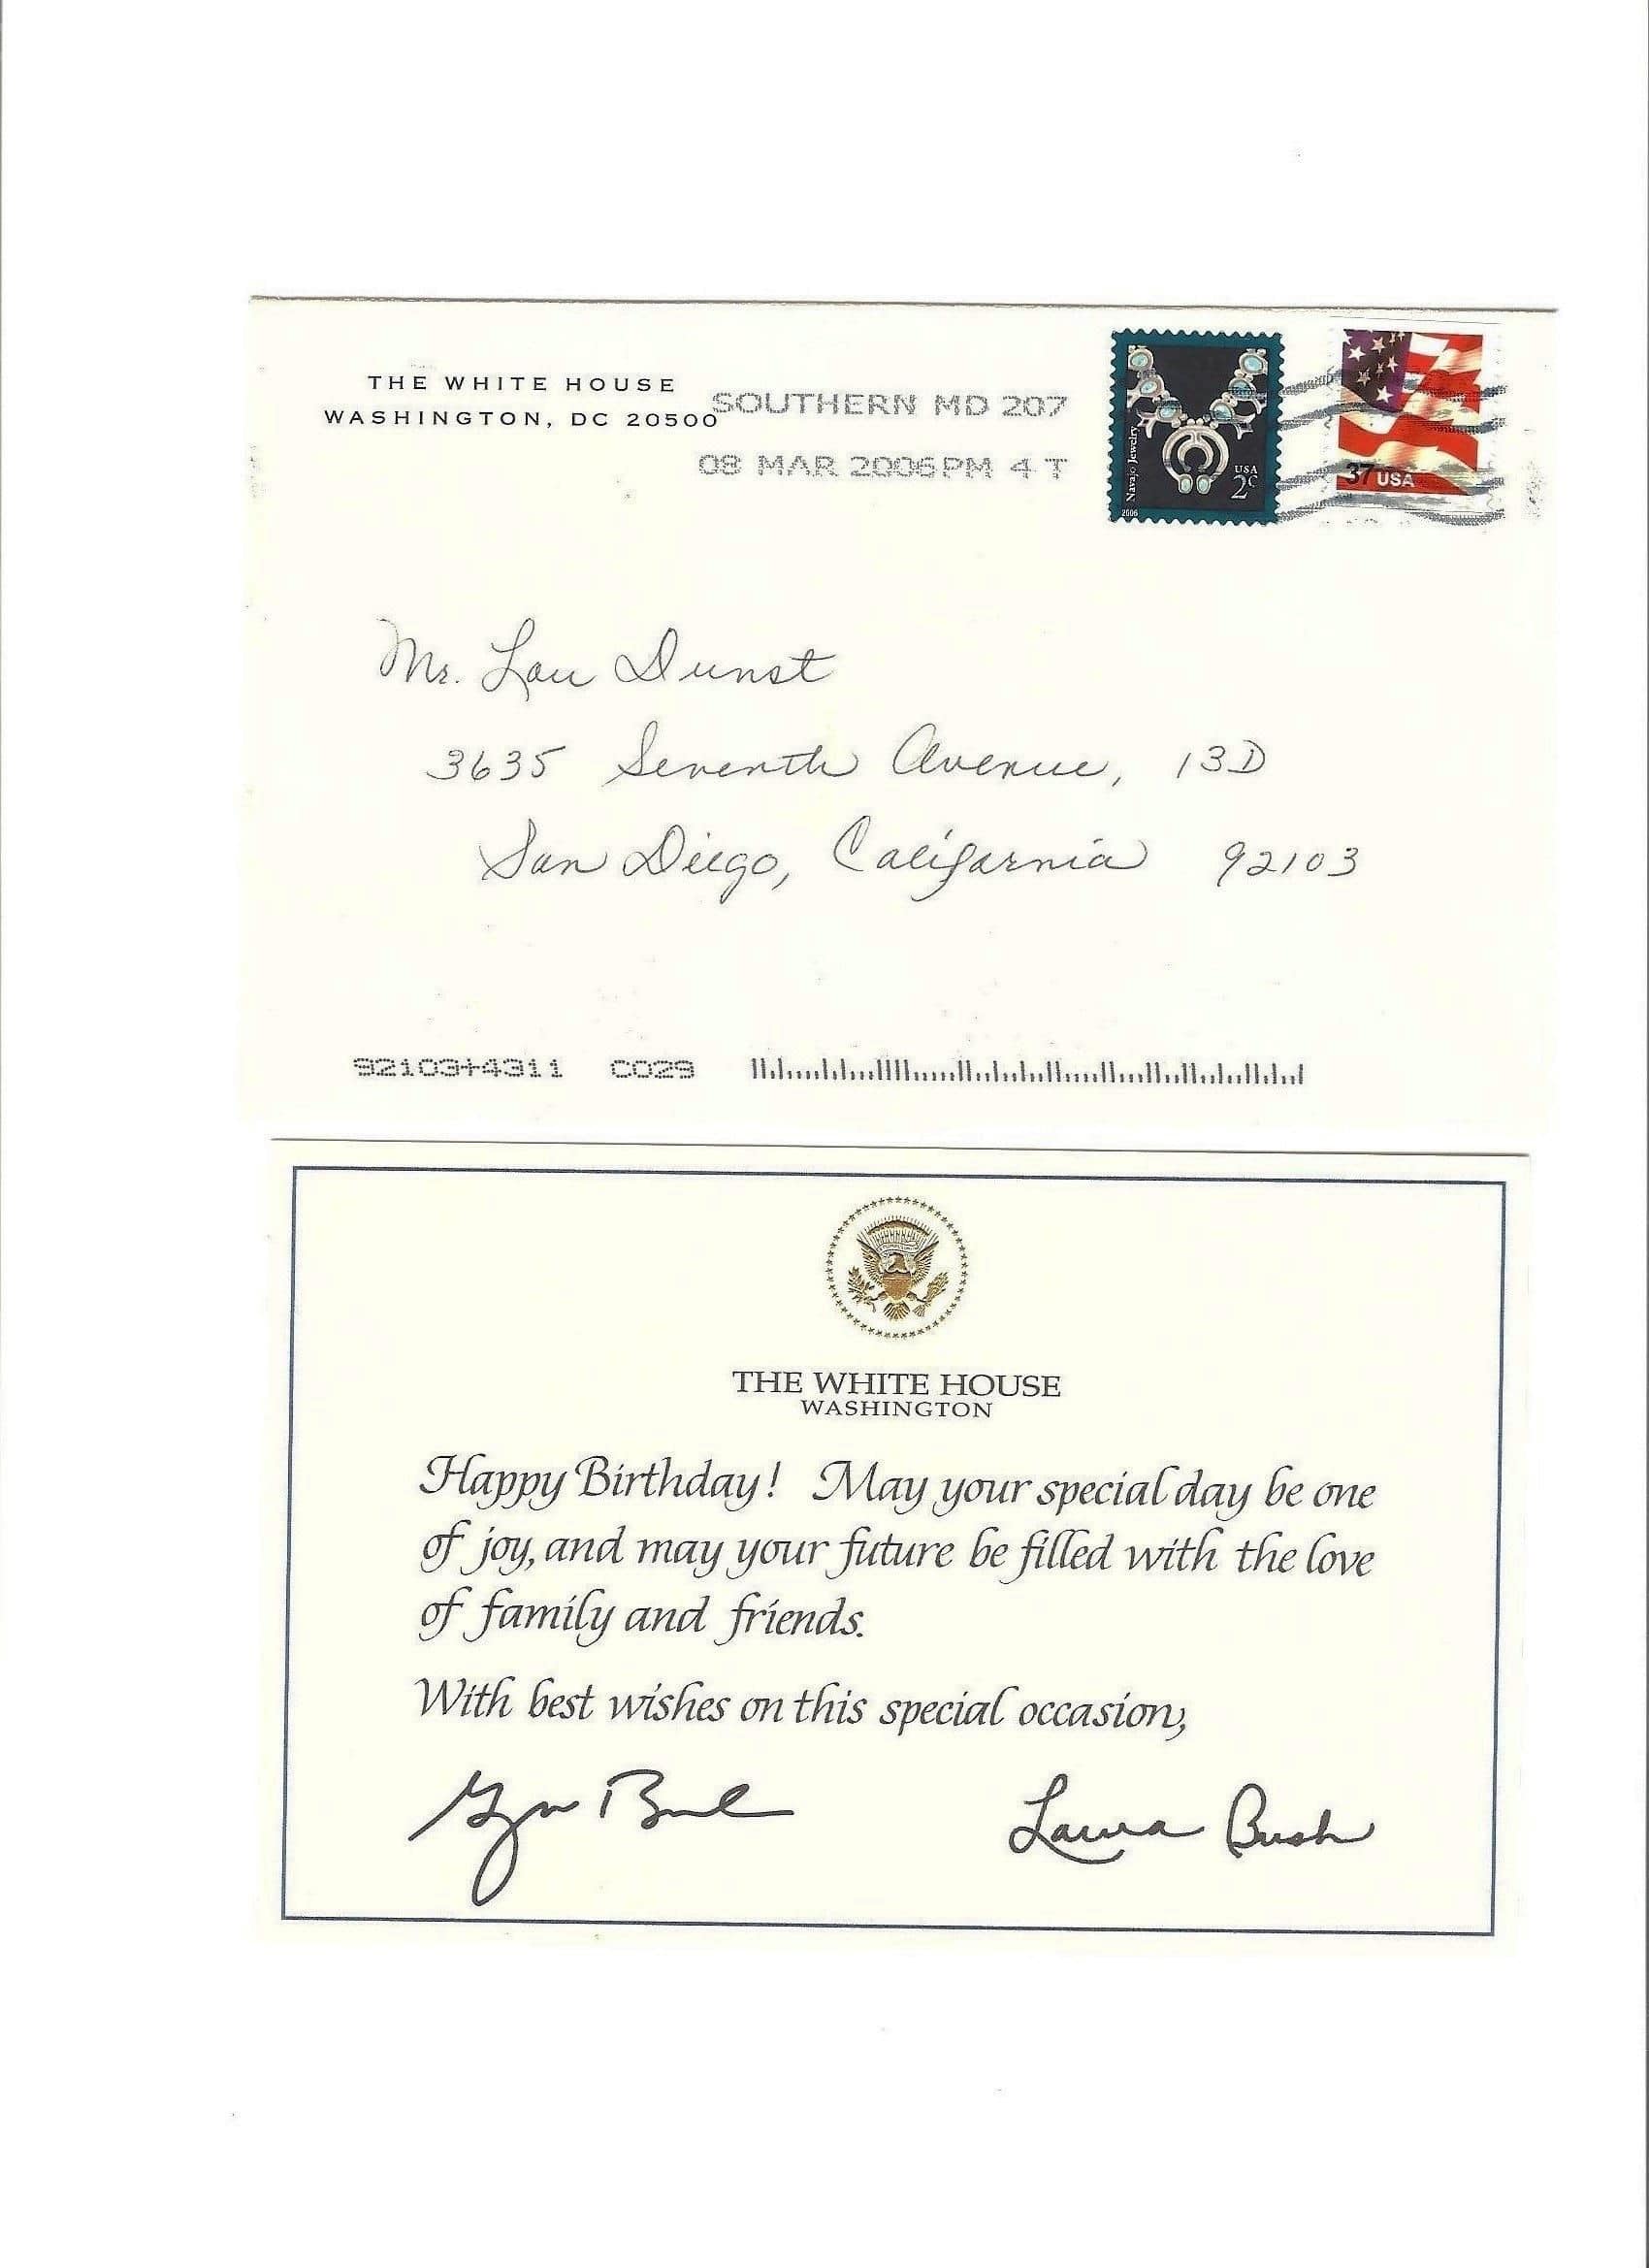 THE WHITE HOUSE
WASHINGTON, DC 20500
SOUTHERN MD 207
08 MAR 2006 PM 4 T
Navajo Jewelry
2006
USA
2c
37 USA
Mr. Lou Dunst
3635 Seventh Avenue, 13D
San Diego, California 92103
92103+4311 C029
THE WHITE HOUSE
WASHINGTON
Happy Birthday! May your special day be one
of joy, and may your future be filled with the love
of family and friends.
With best wishes on this special occasion,
Laura Bush